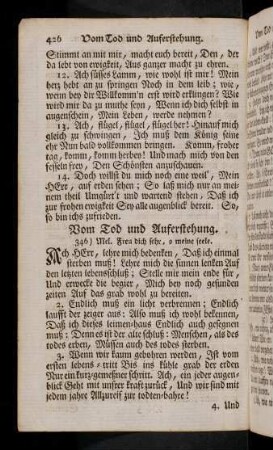 426 Vom Tod und Auferstehung.
Stimmt an mit mir, macht euch bereit, Den, der
da lebt von ewigkeit, Aus ganzer macht zu ehren.
12. Ach süsses Lamm, wie wohl ist mir! Mein
herz hebt an zu springen Noch in dem leib; wie,
wenn bey dir Willkomm'n erst wird erklingen? Wie
wird mir da zu muthe seyn, Wenn ich dich selbst in
augenschein, Mein Leben, werde nehmen?
13. Ach, flügel, flügel, flügel her! Hinauf mich
gleich zu schwingen, Ich muß dem König seine
ehr Nun bald vollkommen bringen. Komm, froher
tag, komm, komm herbey! Und mach mich von den
fesseln frey, Den Schönsten anzuschauen.
14. Doch willst du mich noch eine weil', Mein
HErr, auf erden sehen; So laß mich nur an mei-
nem theil Umgürt't und wartend stehen, Daß ich
zur frohen ewigkeit Sey alle augenblick bereit. So,
so bin ichs zufrieden.
Vom Tod und Auferstehung.
346) Mel. Freu dich sehr, o meine seele.
Ach HErr, lehre mich bedenken, Daß ich einmal
sterben muß! Lehre mich die sinnen lenken Auf
den letzten lebensschluß; Stelle mir mein ende für,
Und erwecke die begier, Mich bey noch gesunden
zeiten Auf das grab wohl zu bereiten.
2. Endlich muß ein licht verbrennen; Endlich
lauft der zeiger aus: Also muß ich wohl bekennen,
Daß ich dieses leimen-haus Endlich auch gesegnen
muß: Denn es ist der alte schluß: Menschen, als des
todes erben, Müssen auch des todes sterben.
3. Wenn wir kaum gebohren werden, Ist vom
ersten lebens-tritt Bis ins kühle grab der erden
Nur ein kurz-gemeßner schritt. Ach, ein jeder augen-
blick Geht mit unsrer kraft zurück, Und wir sind mit
jedem jahre Allzureif zur todten-bahre!
4. Und